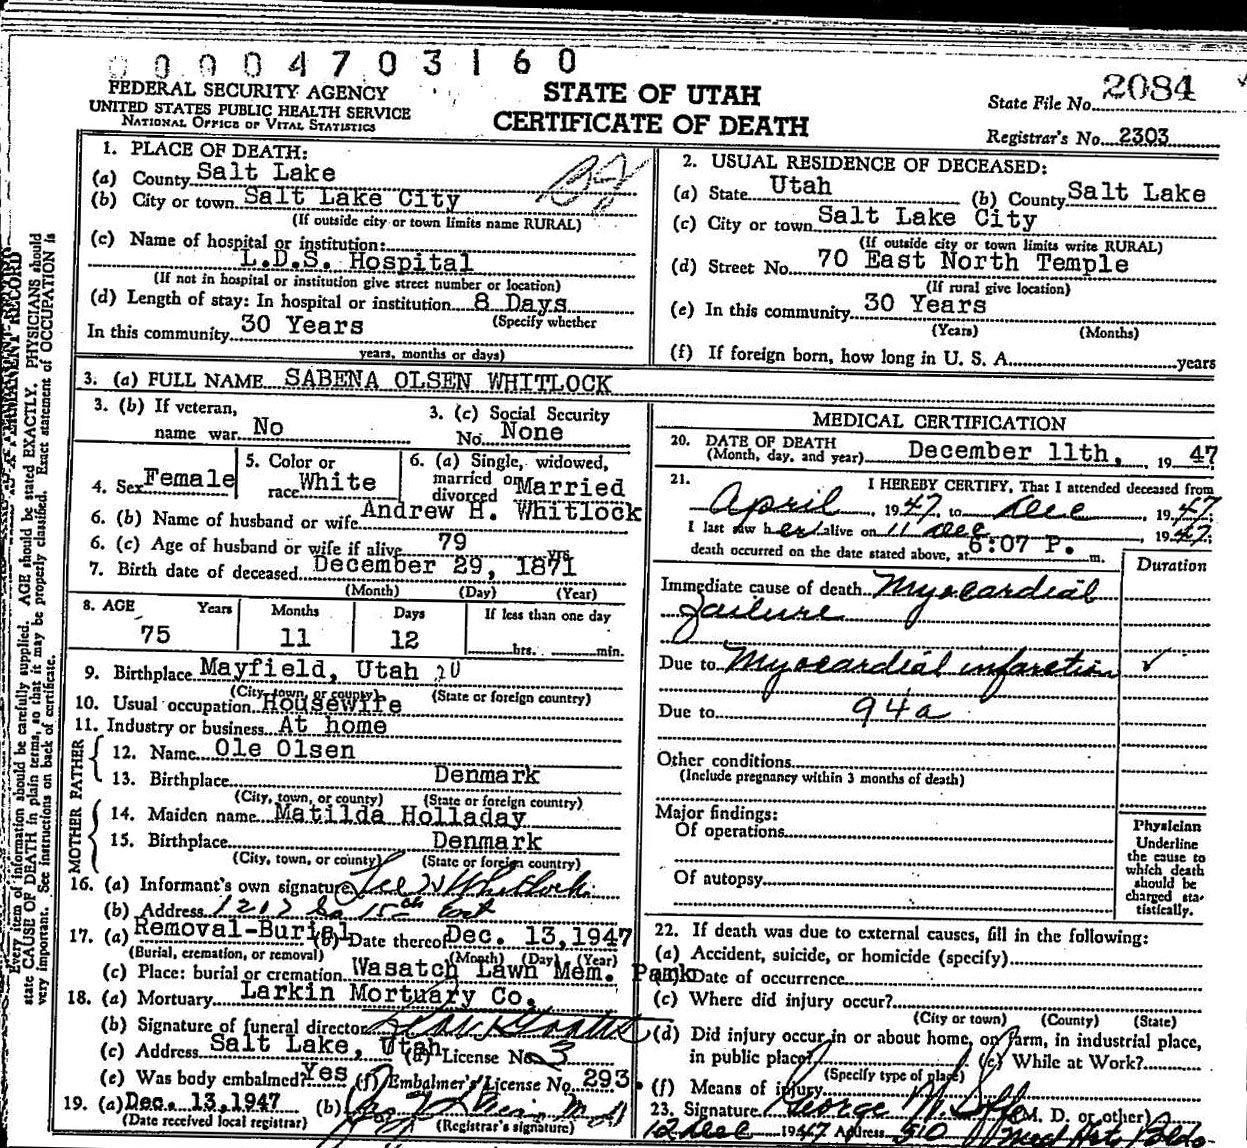 0004703160
FEDERAL SECURITY AGENCY
UNITED STATES PUBLIC HEALTH SERVICE
NATIONAL OFFICE OF VITAL STATISTICS
STATE OF UTAH
CERTIFICATE OF DEATH
State File No. 2084
Registrar's No. 2303
1. PLACE OF DEATH:
(a) County Salt Lake
(b) City or town Salt Lake City
(If outside city or town limits name RURAL)
(c) Name of hospital or institution:
L.D.S. Hospital
(If not in hospital or institution give street number or location)
(d) Length of stay: In hospital or institution 8 Days
(Specify whether
In this community 30 Years
years, months or days)
2. USUAL RESIDENCE OF DECEASED:
(a) State Utah (b) County Salt Lake
(c) City or town Salt Lake City
(If outside city or town limits write RURAL)
(d) Street No. 70 East North Temple
(If rural give location)
(e) In this community 30 Years
(Years) (Months)
(f) If foreign born, how long in U. S. A. years
3. (a) FULL NAME SABENA OLSEN WHITLOCK
3. (b) If veteran,
name war No
3. (c) Social Security
No. None
4. Sex Female
5. Color or
race White
6. (a) Single, widowed,
married or
divorced Married
6. (b) Name of husband or wife Andrew H. Whitlock
6. (c) Age of husband or wife if alive 79 yrs
7. Birth date of deceased December 29, 1871
(Month) (Day) (Year)
8. AGE Years Months Days If less than one day
75 11 12 hrs. min.
9. Birthplace Mayfield, Utah
(City, town, or county) (State or foreign country)
10. Usual occupation Housewife
11. Industry or business At home
FATHER
12. Name Ole Olsen
13. Birthplace Denmark
(City, town, or county) (State or foreign country)
MOTHER
14. Maiden name Matilda Holladay
15. Birthplace Denmark
(City, town, or county) (State or foreign country)
16. (a) Informant's own signature Lee W Whitlock
(b) Address 1217 So 15th East
17. (a) Removal-Burial (b) Date thereof Dec. 13,1947
(Burial, cremation, or removal) (Month) (Day) (Year)
(c) Place: burial or cremation Wasatch Lawn Mem. Park
18. (a) Mortuary Larkin Mortuary Co.
(b) Signature of funeral director
(c) Address Salt Lake, Utah (d) License No. 3
(e) Was body embalmed? Yes (f) Embalmer's License No. 293
19. (a) Dec. 13,1947 (b)
(Date received local registrar) (Registrar's signature)
MEDICAL CERTIFICATION
20. DATE OF DEATH
(Month, day, and year) December 11th, 1947
21. I HEREBY CERTIFY, That I attended deceased from
April, 1947, to Dec, 1947;
I last saw her alive on 11 Dec, 1947;
death occurred on the date stated above, at 6:07 P. m.
Duration
Immediate cause of death Myocardial
failure
Due to Myocardial infarction ✓
Due to 94a
Other conditions
(Include pregnancy within 3 months of death)
Major findings:
Of operations
Of autopsy
Physician
Underline
the cause to
which death
should be
charged sta-
tistically.
22. If death was due to external causes, fill in the following:
(a) Accident, suicide, or homicide (specify)
(b) Date of occurrence
(c) Where did injury occur?
(City or town) (County) (State)
(d) Did injury occur in or about home, on farm, in industrial place,
in public place? (e) While at Work?
(Specify type of place)
(f) Means of injury
23. Signature George W (M. D. or other)
12 Dec 1947 Address 510
A PERMANENT RECORD
Every item of information should be carefully supplied. AGE should be stated EXACTLY. PHYSICIANS should
state CAUSE OF DEATH in plain terms, so that it may be properly classified. Exact statement of OCCUPATION is
very important. See instructions on back of certificate.